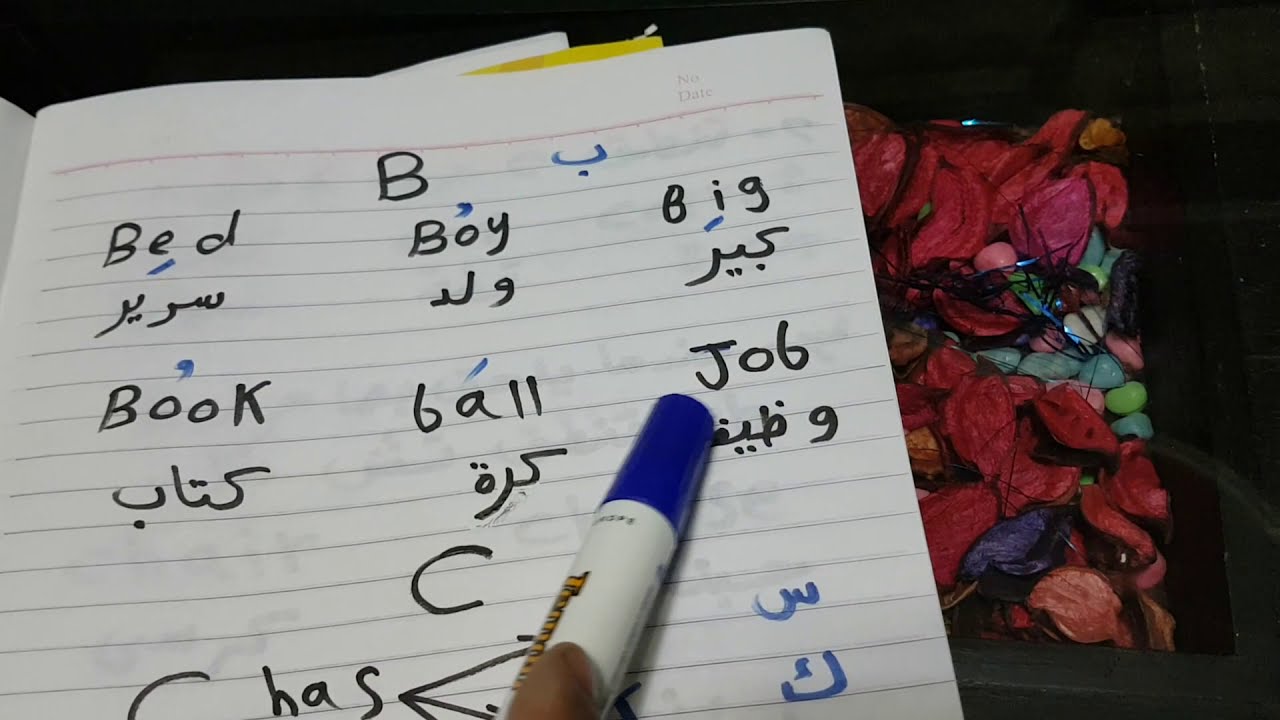 No
Date
B ب
Bed Boy Big
سرير ولد كبير
Book ball Job
كتاب كرة
C
س
C has
ك